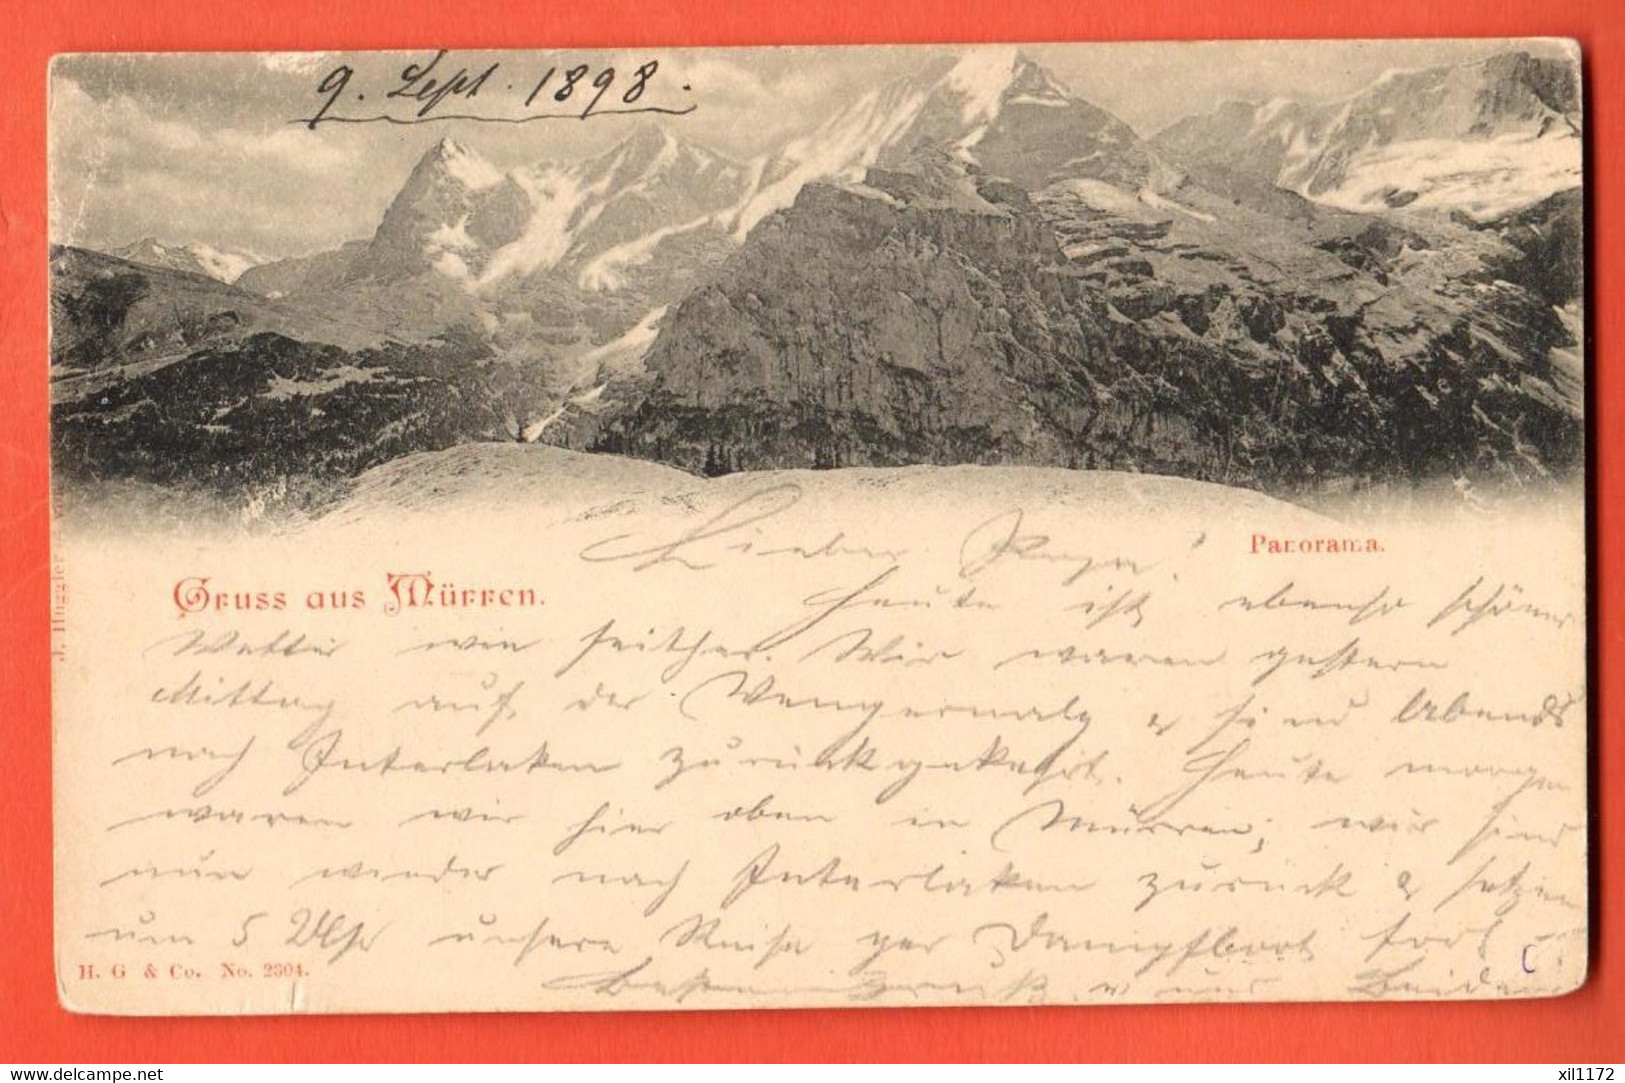 9. Sept. 1898.
Panorama.
Gruss aus Mürren.
Lieber Papa!
Heute ist ebenso schönes
Wetter wie seither. Wir waren gestern
Mittag auf der Wengernalp & sind Abends
nach Interlaken zurückgekehrt. Heute morgen
waren wir hier oben in Mürren; wir sind
nun wieder nach Interlaken zurück & setzen
um 5 Uhr unsere Reise per Dampfboot fort
v. uns Beiden
J. Huggler
H. G & Co. No. 2304.
delcampe.net
xil1172